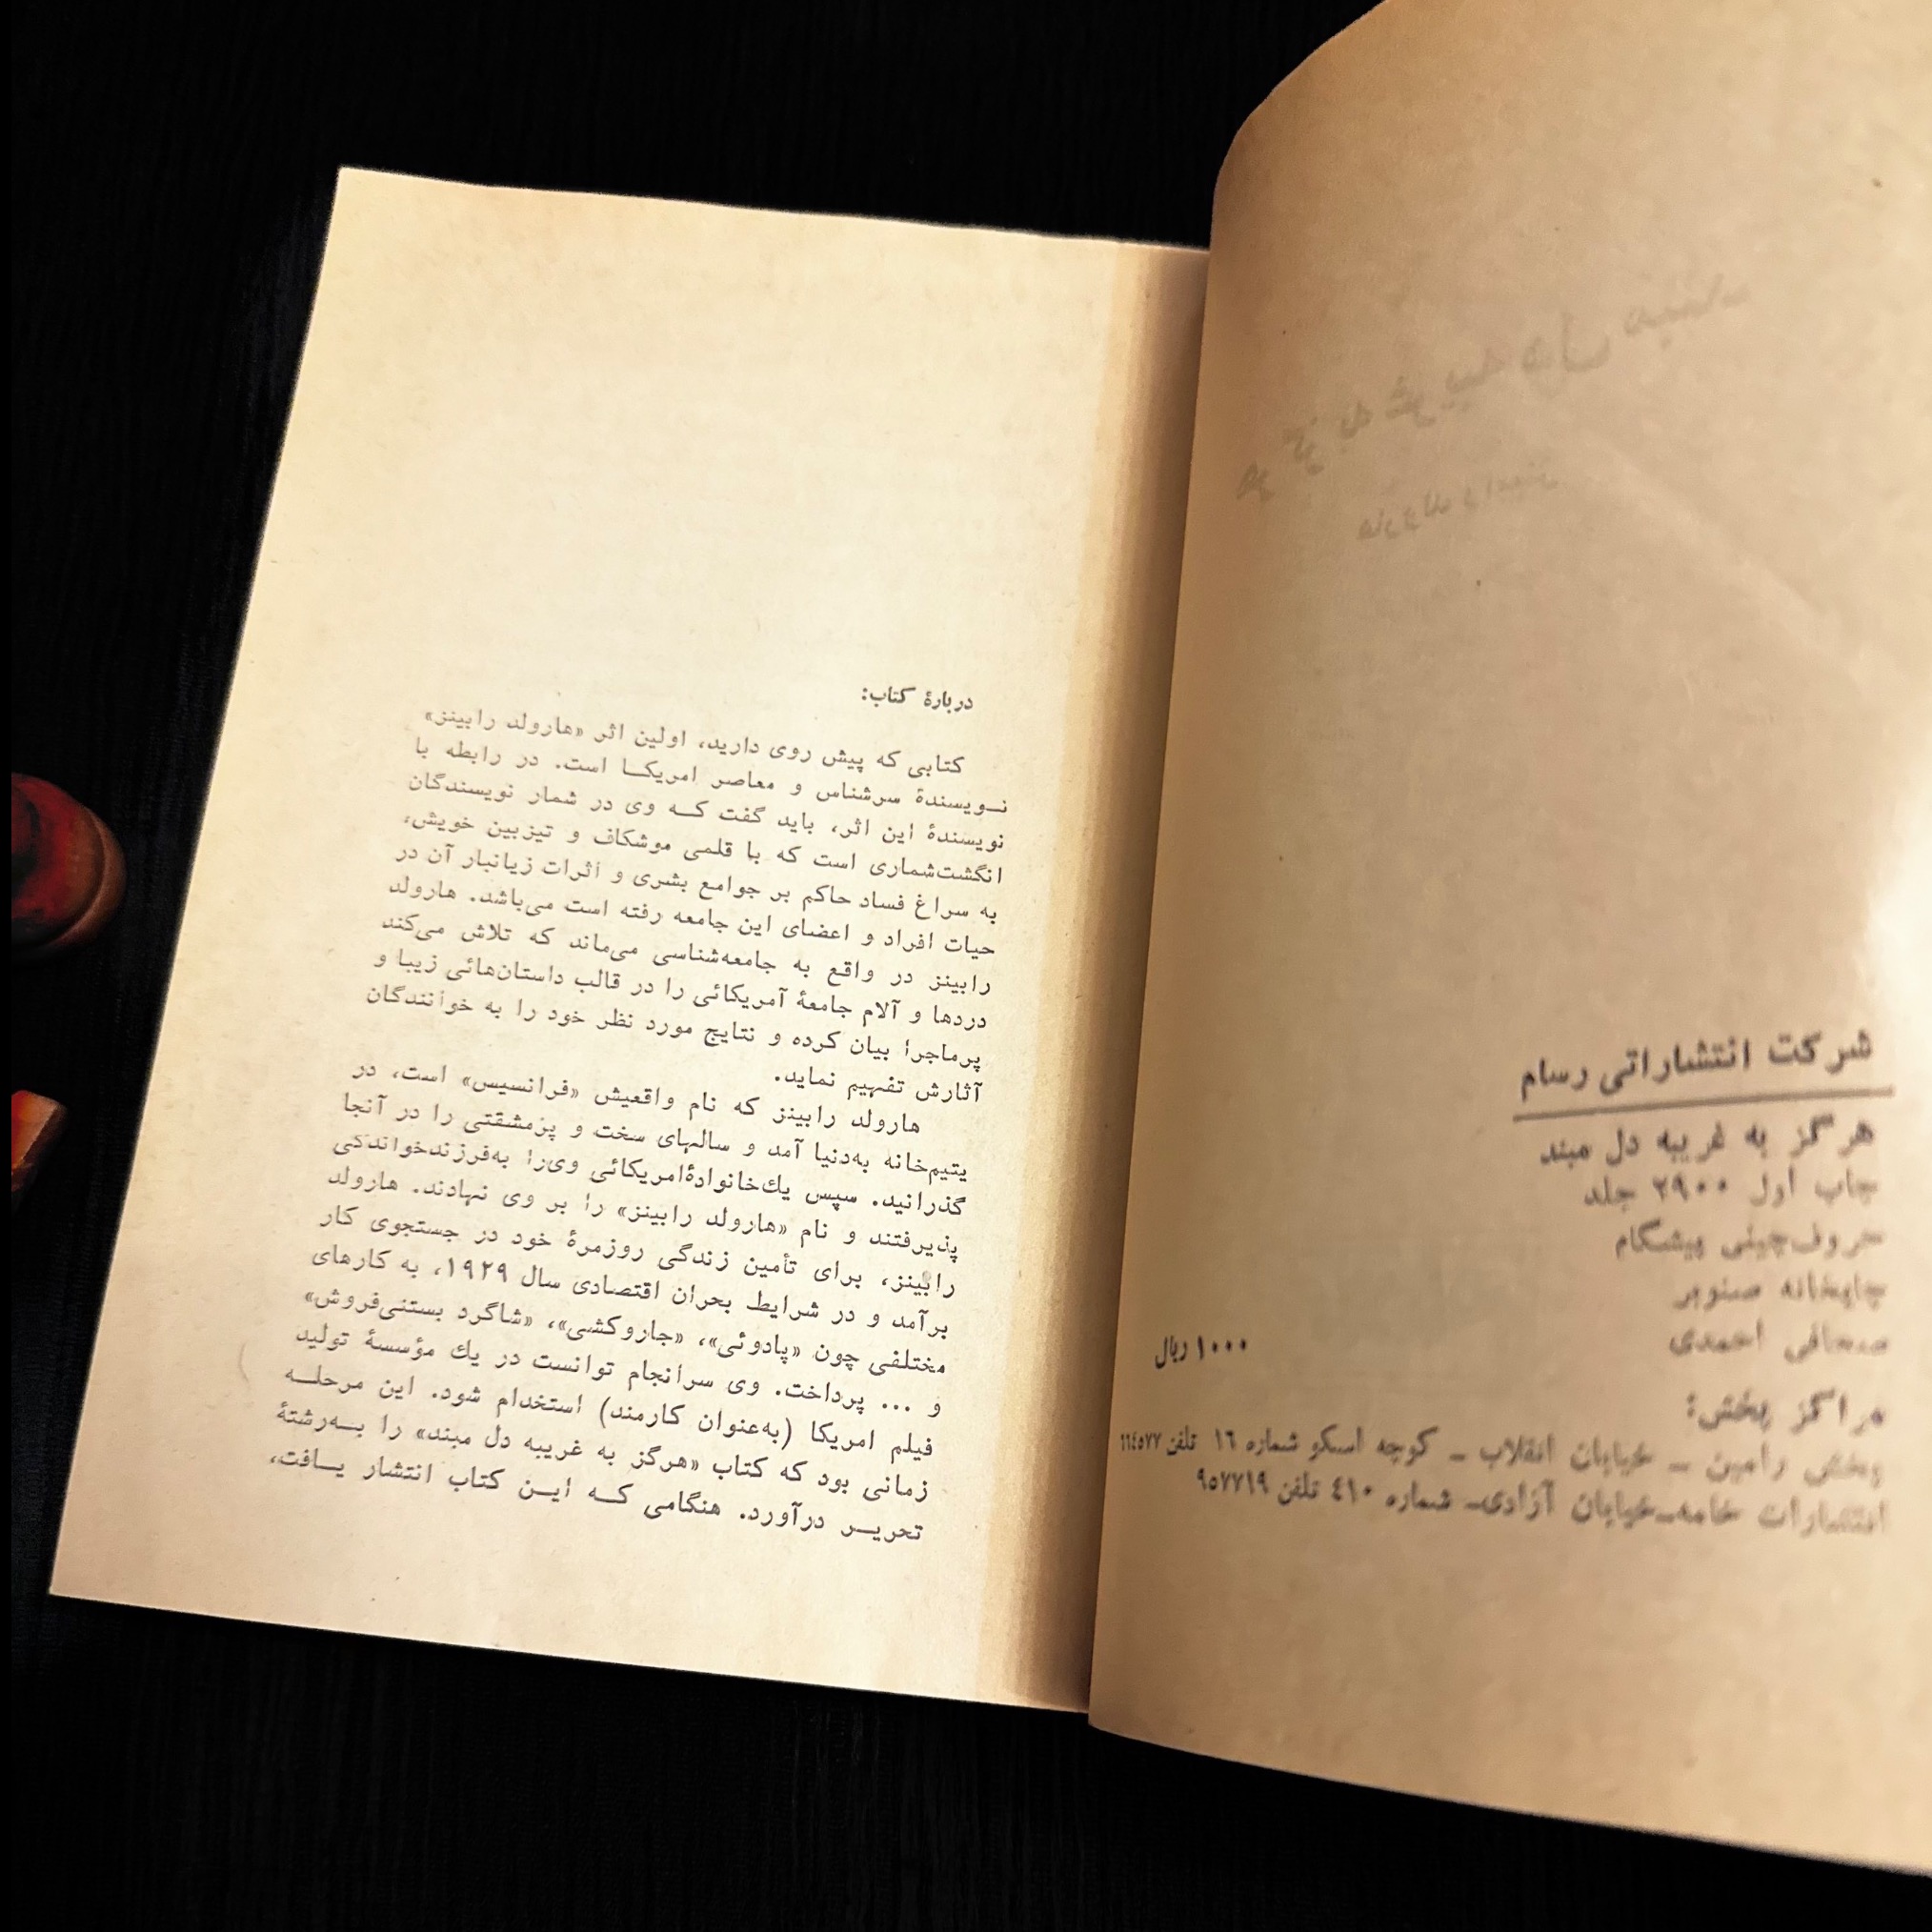 شرکت انتشاراتی رسام
هرگز به غریبه دل مبند
چاپ اول ۲۹۰۰ جلد
حروف‌چینی پیشگام
چاپخانه صنوبر
صحافی احمدی
۱۰۰۰ ریال
مراکز پخش:
پخش رامین ـ خیابان انقلاب ـ کوچه اسکو شماره ۱۶ تلفن ۶۶٤٥۷۷
انتشارات خامه‌ـ‌خیابان آزادی‌ـ شماره ٤۱۰ تلفن ۹٥۷۷۱۹
دربارهٔ کتاب:
کتابی که پیش روی دارید، اولین اثر «هارولد رابینز»
نـویسندهٔ سرشناس و معاصر امریکـا است. در رابطه با
نویسندهٔ این اثر، باید گفت کـه وی در شمار نویسندگان
انگشت‌شماری است که با قلمی موشکاف و تیزبین خویش،
به سراغ فساد حاکم بر جوامع بشری و اثرات زیانبار آن در
حیات افراد و اعضای این جامعه رفته است می‌باشد. هارولد
رابینز در واقع به جامعه‌شناسی می‌ماند که تلاش می‌کند
دردها و آلام جامعهٔ آمریکائی را در قالب داستان‌هائی زیبا و
پرماجرا بیان کرده و نتایج مورد نظر خود را به خوانندگان
آثارش تفهیم نماید.
هارولد رابینز که نام واقعیش «فرانسیس» است، در
یتیم‌خانه به‌دنیا آمد و سالهای سخت و پرمشقتی را در آنجا
گذرانید. سپس یك‌خانوادهٔ‌امریکائی وی‌را به‌فرزندخواندگی
پذیرفتند و نام «هارولد رابینز» را بر وی نهادند. هارولد
رابینز، برای تأمین زندگی روزمرهٔ خود در جستجوی کار
برآمد و در شرایط بحران اقتصادی سال ۱۹۲۹، به کارهای
مختلفی چون «پادوئی»، «جاروکشی»، «شاگرد بستنی‌فروش»
و ... پرداخت. وی سرانجام توانست در یك مؤسسهٔ تولید
فیلم امریکا (به‌عنوان کارمند) استخدام شود. این مرحلـه
زمانی بود که کتاب «هرگز به غریبه دل مبند» را بـه‌رشتهٔ
تحریـر درآورد. هنگامی کـه ایـن کتاب انتشار یـافت،